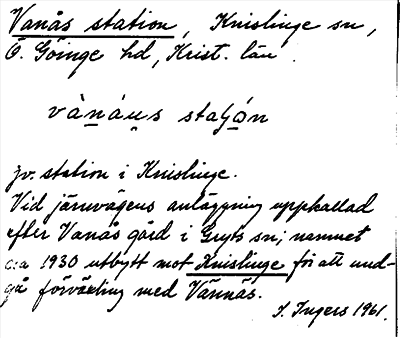 Vanås station, Knislinge sn,
Ö. Göinge hd, Krist. län.
vànáus staʃón
jv. station i Knislinge.
Vid järnvägens anläggning uppkallad
efter Vanås gård i Gryts sn; namnet
c:a 1930 utbytt mot Knislinge för att und-
gå förväxling med Vännäs.
I. Ingers 1961.